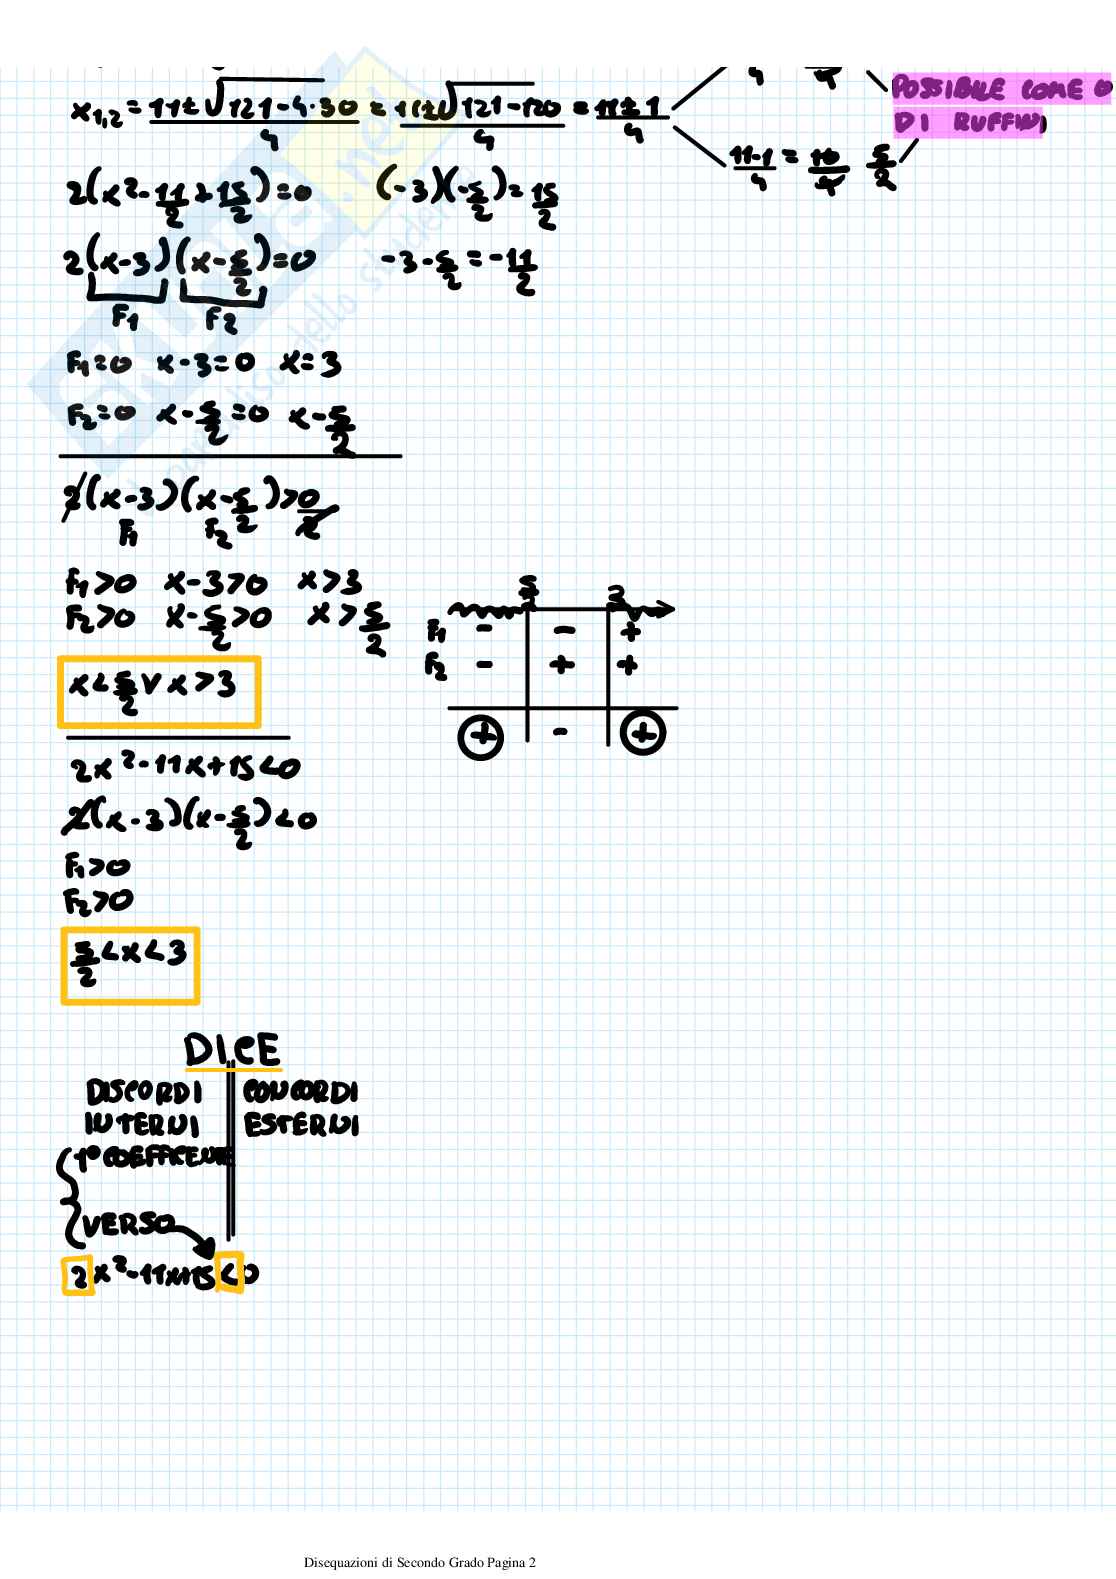 x₁,₂ = (11 ± √(121 - 4·30))/4 = (11 ± √(121 - 120))/4 = (11 ± 1)/4
POSSIBILE COME
DI RUFFINI
(11-1)/4 = 10/4 5/2
2(x² - 11/2 + 15/2) = 0 (-3)(-5/2) = 15/2
2(x-3)(x-5/2) = 0 -3 - 5/2 = -11/2
F₁ F₂
F₁=0 x-3=0 x=3
F₂=0 x-5/2=0 x-5/2
2(x-3)(x-5/2) > 0/2
F₁ F₂
F₁>0 x-3>0 x>3
F₂>0 x-5/2>0 x>5/2
5/2 3
F₁ - - +
F₂ - + +
+ - +
x < 5/2 ∨ x > 3
2x²-11x+15<0
2(x-3)(x-5/2)<0
F₁>0
F₂>0
5/2 < x < 3
DICE
DISCORDI CONCORDI
INTERNI ESTERNI
1° COEFFICENTE
VERSO
2x²-11x+15<0
SKUOLA.net
Disequazioni di Secondo Grado Pagina 2